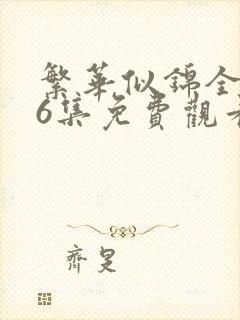 繁華似錦全
6集免費觀看
齊是